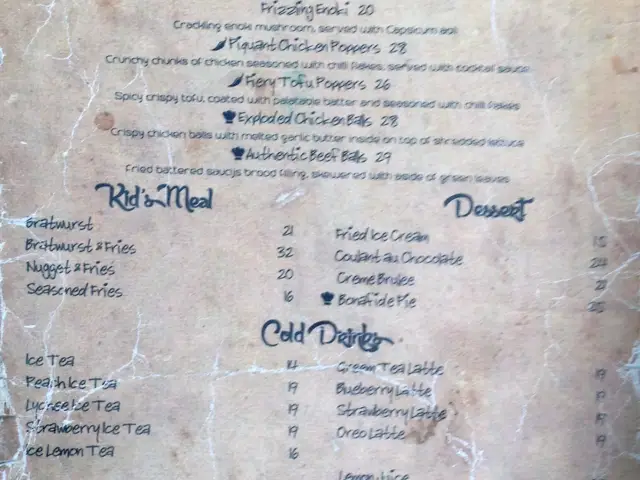 Frizzling Enoki 20
Crackling enoki mushroom, served with Capsicum aoli
Piquant Chicken Poppers 28
Crunchy chunks of chicken seasoned with chilli flakes, served with cocktail sauce
Fiery Tofu Poppers 26
Spicy crispy tofu, coated with palatable batter and seasoned with chilli flakes
Exploded Chicken Balls 28
Crispy chicken balls with melted garlic butter inside on top of shredded lettuce
Authentic Beef Balls 29
Fried battered saucijs brood filling, skewered with aside of green leaves
Kid's Meal
Bratwurst 21
Bratwurst & Fries 32
Nugget & Fries 20
Seasoned Fries 16
Dessert
Fried Ice Cream
Coulant au Chocolate
Creme Brulee
Bonafide Pie
Cold Drinks
Ice Tea 14
Peach Ice Tea 19
Lychee Ice Tea 19
Strawberry Ice Tea 19
Ice Lemon Tea 16
Green Tea Latte 19
Blueberry Latte 19
Strawberry Latte 19
Oreo Latte 19
Lemon Juice